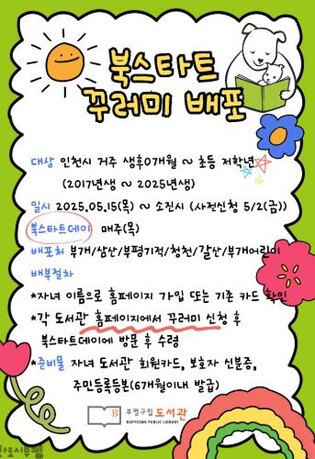 북스타트
꾸러미 배포
대상 인천시 거주 생후0개월 ~ 초등 저학년
(2017년생 ~ 2025년생)
일시 2025.05.15(목) ~ 소진시 (사전신청 5/2(금))
북스타트데이 매주(목)
배포처 부개/삼산/부평기적/청천/갈산/부개어린이
배부절차
*자녀 이름으로 홈페이지 가입 또는 기존 카드 확인
*각 도서관 홈페이지에서 꾸러미 신청 후
북스타트데이에 방문 후 수령
*준비물 자녀 도서관 회원카드, 보호자 신분증,
주민등록등본(6개월이내 발급)
B 부평구립 도서관
BUPYEONG PUBLIC LIBRARY